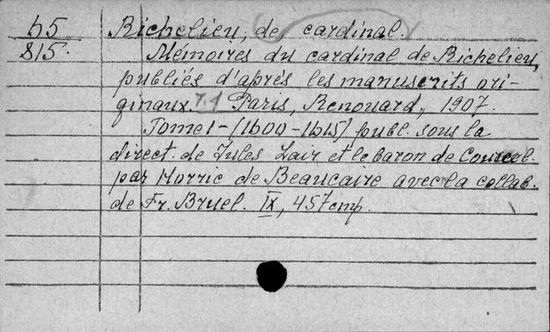 h5 Richelieu, de, cardinal.
815. Mémoires du cardinal de Richelieu,
publiés d'après les manuscrits ori-
ginaux. T.1 Paris, Renouard, 1907.
Tome 1 - (1600-1615) publ. sous la
direct. de Jules Lair et le baron de Courcel.
par Horric de Beaucaire avec la collab.
de Fr. Bruel. IX, 457 стр.